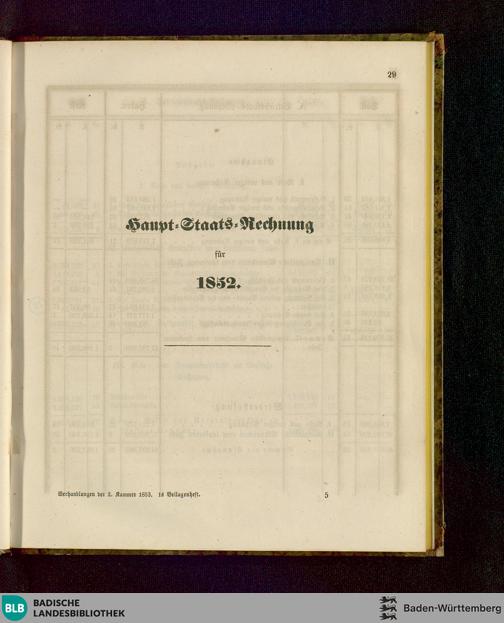 29
Haupt-Staats-Rechnung
für
1852.
Verhandlungen der 2. Kammer 1853. 18 Beilagenheft.
5
BLB
BADISCHE
LANDESBIBLIOTHEK
Baden-Württemberg